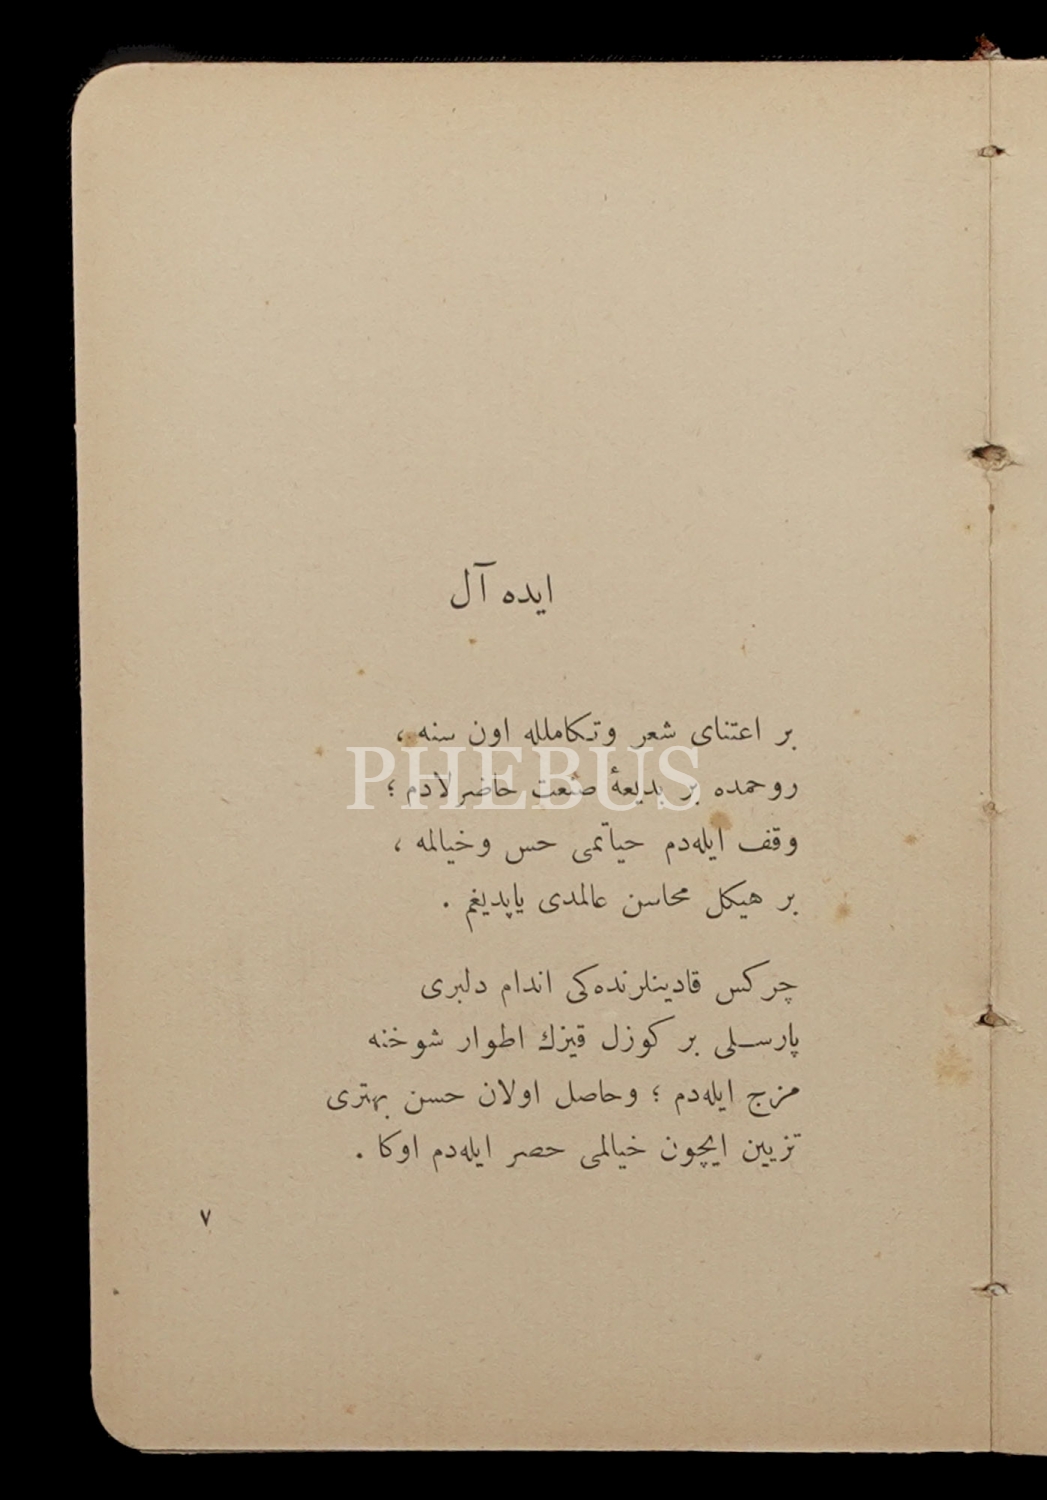 ایده آل
بر اعتنای شعر وتکاملله اون سنه ،
روحمده بر بدیعهٔ صنعت حاضرلادم ؛
وقف ایله‌دم حیاتمی حس وخیالمه ،
بر هیکل محاسن عالمدی یاپدیغم .
چرکس قادینلرنده‌کی اندام دلبری
پارسلی بر کوزل قیزك اطوار شوخنه
مزج ایله‌دم ؛ وحاصل اولان حسن بهتری
تزیین ایچون خیالمی حصر ایله‌دم اوکا .
٧
PHEBUS